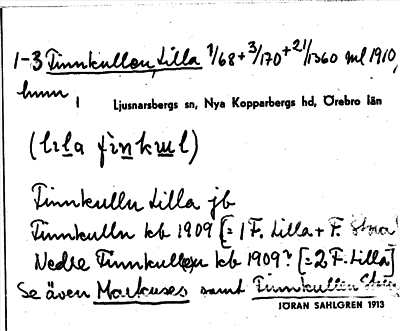 1-3 Finnkullen, Lilla 1/68 + 3/170 + 21/1360 ml 1910,
hmn,
Ljusnarsbergs sn, Nya Kopparbergs hd, Örebro län
(lila finkul)
Finnkulln Lilla jb
Finnkulln kb 1909 [= 1 F. Lilla + F. Stora]
Nedre Finnkullen kb 1909? [= 2 F. Lilla]
Se även Markuses samt Finnkullen Stora
JÖRAN SAHLGREN 1913